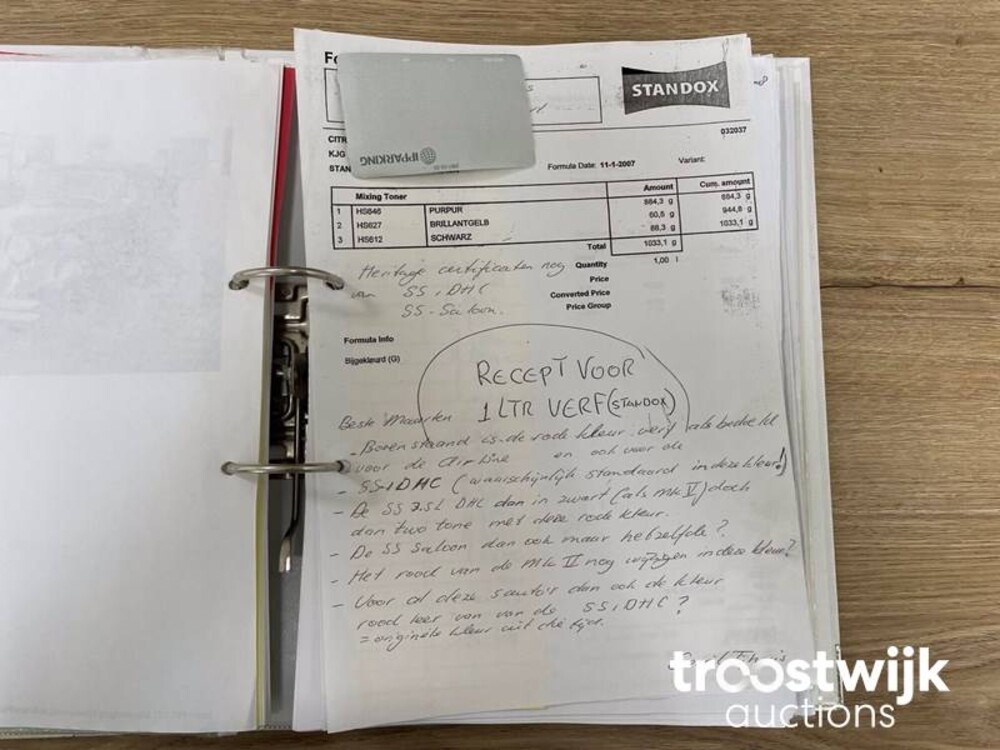 Fo
STANDOX
032037
CITR
KJG
STAN
IPPARKING
Formula Date: 11-1-2007 Variant:
Mixing Toner Amount Cum. amount
1 HS646 PURPUR 884,3 g 884,3 g
2 HS627 BRILLANTGELB 60,5 g 944,8 g
3 HS612 SCHWARZ 88,3 g 1033,1 g
Total 1033,1 g
Quantity 1,00 l
Price
Converted Price
Price Group
Heritage certificaten nog
van SS1 DHC
SS-Saloon.
Formula Info
Bijgekleurd (G)
RECEPT VOOR
1 LTR VERF (STANDOX)
Beste Maarten
- Bovenstaand is de rode kleur verf als bedoeld
voor de Airline en ook voor de
- SS1 DHC (waarschijnlijk standaard in deze kleur!)
- De SS 2.5L DHC dan in zwart (als Mk V) doch
dan two tone met deze rode kleur.
- De SS Saloon dan ook maar hetzelfde?
- Het rood van de Mk II nog wijzigen in deze kleur?
- Voor al deze auto's dan ook de kleur
rood leer van de SS1 DHC?
= originele kleur uit die tijd.
troostwijk
auctions